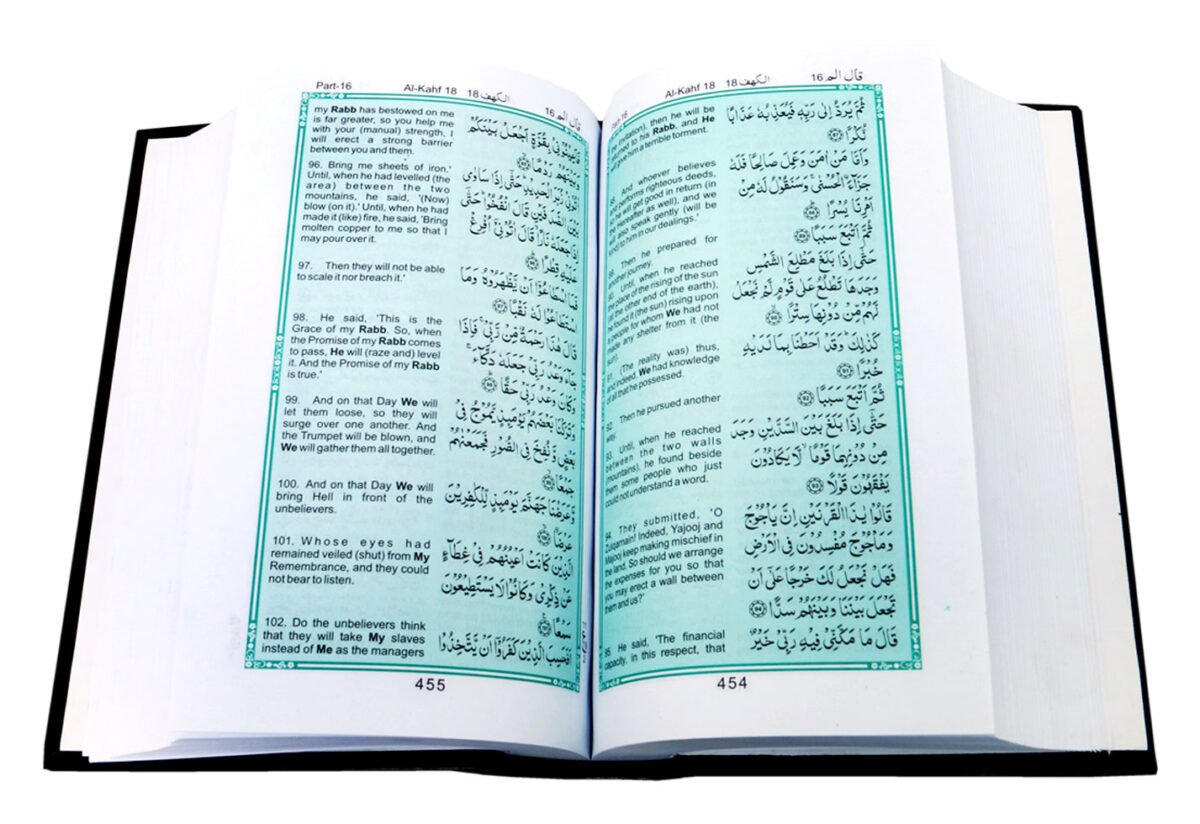 Part-16 Al-Kahf 18 الكهف 18 قال الم 16
invitation), then he will be
to his Rabb, and He
will give him a terrible torment.
88. And whoever believes
and performs righteous deeds,
so he will get good in return (in
the Hereafter as well), and we
will also speak gently (will be
kind) to him in our dealings.'
89. Then he prepared for
another journey.
90. Until, when he reached
the place of the rising of the sun
(at the other end of the earth),
he found it (the sun) rising upon
a people for whom We had not
made any shelter from it (the
91. (The reality was) thus,
and indeed, We had knowledge
of all that he possessed.
92. Then he pursued another
way.
93. Until, when he reached
between the two walls
(mountains), he found beside
them some people who just
could not understand a word.
94. They submitted, 'O
Zulqarnain! Indeed, Yajooj and
Majooj keep making mischief in
the land. So should we arrange
the expenses for you so that
you may erect a wall between
them and us?'
95. He said, 'The financial
capacity, in this respect, that
ثُمَّ يُرَدُّ إِلَىٰ رَبِّهٖ فَيُعَذِّبُهٗ عَذَابًا
نُّكْرًا ۝٨٧
وَاَمَّا مَنْ اٰمَنَ وَعَمِلَ صَالِحًا فَلَهٗ
جَزَآءَۨ الْحُسْنٰى ۚ وَسَنَقُوْلُ لَهٗ مِنْ
اَمْرِنَا يُسْرًا ۝٨٨
ثُمَّ اَتْبَعَ سَبَبًا ۝٨٩
حَتّٰۤى اِذَا بَلَغَ مَطْلِعَ الشَّمْسِ
وَجَدَهَا تَطْلُعُ عَلٰى قَوْمٍ لَّمْ نَجْعَلْ
لَّهُمْ مِّنْ دُوْنِهَا سِتْرًا ۝٩٠
كَذٰلِكَ ؕ وَقَدْ اَحَطْنَا بِمَا لَدَيْهِ
خُبْرًا ۝٩١
ثُمَّ اَتْبَعَ سَبَبًا ۝٩٢
حَتّٰۤى اِذَا بَلَغَ بَيْنَ السَّدَّيْنِ وَجَدَ
مِنْ دُوْنِهِمَا قَوْمًا ۙ لَّا يَكَادُوْنَ
يَفْقَهُوْنَ قَوْلًا ۝٩٣
قَالُوْا يٰذَا الْقَرْنَيْنِ اِنَّ يَاْجُوْجَ
وَمَاْجُوْجَ مُفْسِدُوْنَ فِى الْاَرْضِ
فَهَلْ نَجْعَلُ لَكَ خَرْجًا عَلٰۤى اَنْ
تَجْعَلَ بَيْنَنَا وَبَيْنَهُمْ سَدًّا ۝٩٤
قَالَ مَا مَكَّنِّىْ فِيْهِ رَبِّىْ خَيْرٌ
454
Part-16 Al-Kahf 18 الكهف 18 قال الم 16
my Rabb has bestowed on me
is far greater, so you help me
with your (manual) strength, I
will erect a strong barrier
between you and them.
96. Bring me sheets of iron.'
Until, when he had levelled (the
area) between the two
mountains, he said, '(Now)
blow (on it).' Until, when he had
made it (like) fire, he said, 'Bring
molten copper to me so that I
may pour over it.
97. Then they will not be able
to scale it nor breach it.'
98. He said, 'This is the
Grace of my Rabb. So, when
the Promise of my Rabb comes
to pass, He will (raze and) level
it. And the Promise of my Rabb
is true.'
99. And on that Day We will
let them loose, so they will
surge over one another. And
the Trumpet will be blown, and
We will gather them all together.
100. And on that Day We will
bring Hell in front of the
unbelievers.
101. Whose eyes had
remained veiled (shut) from My
Remembrance, and they could
not bear to listen.
102. Do the unbelievers think
that they will take My slaves
instead of Me as the managers
فَاَعِيْنُوْنِىْ بِقُوَّةٍ اَجْعَلْ بَيْنَكُمْ
وَبَيْنَهُمْ رَدْمًا ۝٩٥
اٰتُوْنِىْ زُبَرَ الْحَدِيْدِ ؕ حَتّٰۤى اِذَا سَاوٰى
بَيْنَ الصَّدَفَيْنِ قَالَ انْفُخُوْا ؕ حَتّٰۤى
اِذَا جَعَلَهٗ نَارًا ۙ قَالَ اٰتُوْنِىْۤ اُفْرِغْ
عَلَيْهِ قِطْرًا ۝٩٦
فَمَا اسْطَاعُوْۤا اَنْ يَّظْهَرُوْهُ وَمَا
اسْتَطَاعُوْا لَهٗ نَقْبًا ۝٩٧
قَالَ هٰذَا رَحْمَةٌ مِّنْ رَّبِّىْ ۚ فَاِذَا
جَآءَ وَعْدُ رَبِّىْ جَعَلَهٗ دَكَّآءَ ۚ
وَكَانَ وَعْدُ رَبِّىْ حَقًّا ۝٩٨
وَتَرَكْنَا بَعْضَهُمْ يَوْمَئِذٍ يَّمُوْجُ فِىْ
بَعْضٍ وَّنُفِخَ فِى الصُّوْرِ فَجَمَعْنٰهُمْ
جَمْعًا ۝٩٩
وَّعَرَضْنَا جَهَنَّمَ يَوْمَئِذٍ لِّلْكٰفِرِيْنَ
عَرْضًا ۝١٠٠
الَّذِيْنَ كَانَتْ اَعْيُنُهُمْ فِىْ غِطَآءٍ
عَنْ ذِكْرِىْ وَكَانُوْا لَا يَسْتَطِيْعُوْنَ
سَمْعًا ۝١٠١
اَفَحَسِبَ الَّذِيْنَ كَفَرُوْۤا اَنْ يَّتَّخِذُوْا
455